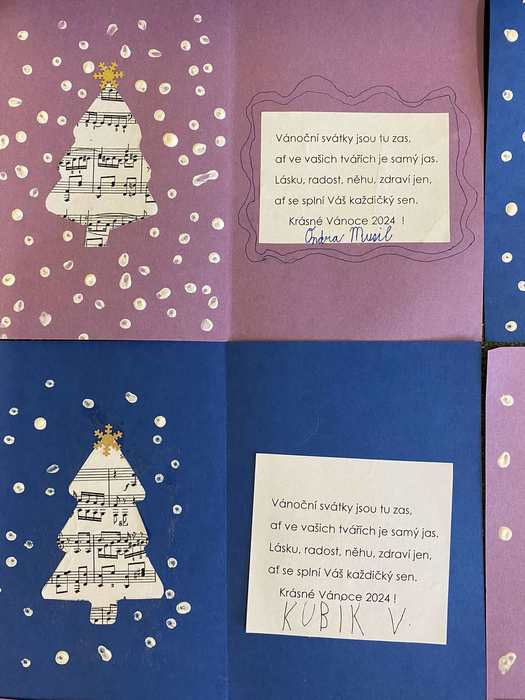 Vánoční svátky jsou tu zas,
ať ve vašich tvářích je samý jas.
Lásku, radost, něhu, zdraví jen,
ať se splní Váš každičký sen.
Krásné Vánoce 2024 !
Ondra Musil
Vánoční svátky jsou tu zas,
ať ve vašich tvářích je samý jas.
Lásku, radost, něhu, zdraví jen,
ať se splní Váš každičký sen.
Krásné Vánoce 2024 !
KUBIK V.